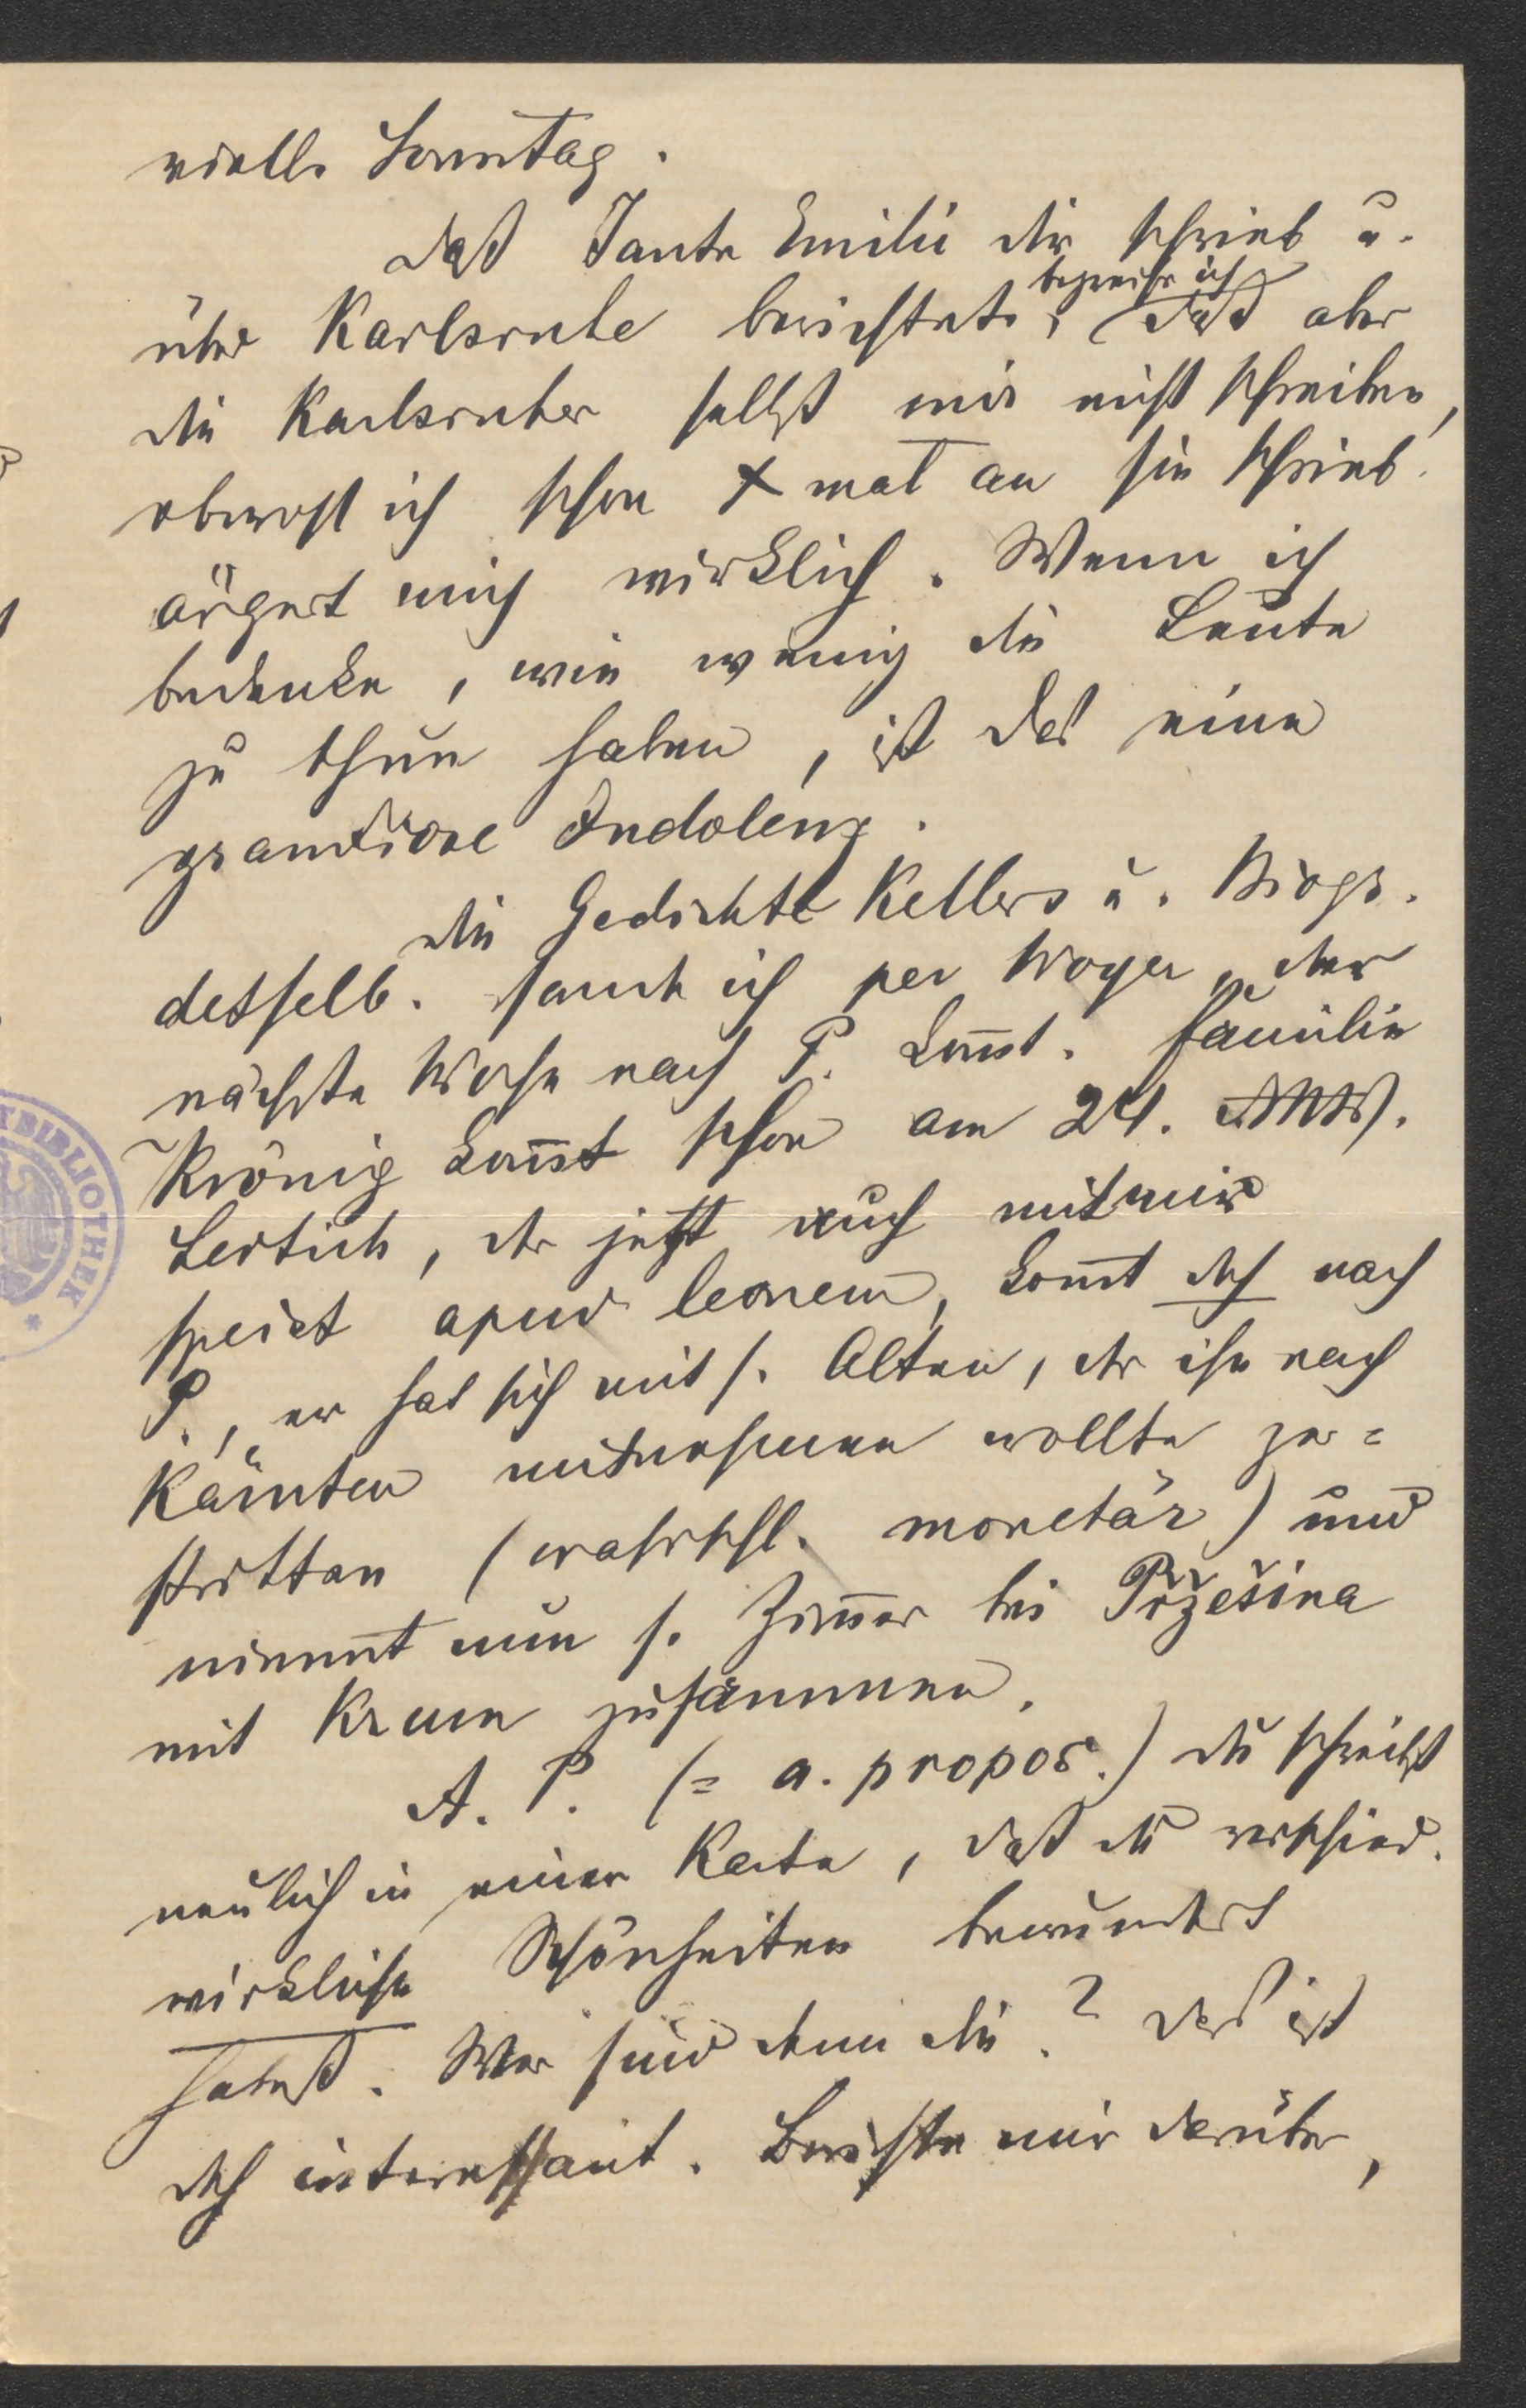 vielle Sonntag.
Daß Tante Emilie dir schrieb u.
über Karlsruhe berichtete, begreife ich daß aber
die Karlsruher selbst mir nicht schreiben,
obwohl ich schon x mal an sie schrieb.
ärgert mich wirklich. Wenn ich
bedenke, wie wenig die Leute
zu thun haben, ist das eine
grandiose Indolenz.
Die Gedichte Kellers u. Biogr.
desselb. sandte ich per Woyer, der
nächste Woche nach P. kom̄t. Familie
Krönig kom̄t schon am 24.
Lertich, der jetzt auch mit mir
speist apud leonem, kom̄t doch nach
P., er hat sich mit s. Alten, der ihn nach
Kärnten mitnehmen wollte zer=
stritten (wahrschl. monetär) und
nimmt nun s. Zim̄er bei Pržešina
mit Krum zusammen.
A. P. (= a. propos.) du schreibst
neulich in einer Karte, daß du verschied.
wirkliche Schönheiten bewundert
habest. Wer sind denn die? Das ist
doch interessant. Berichte mir darüber,
BIBLIOTHEK